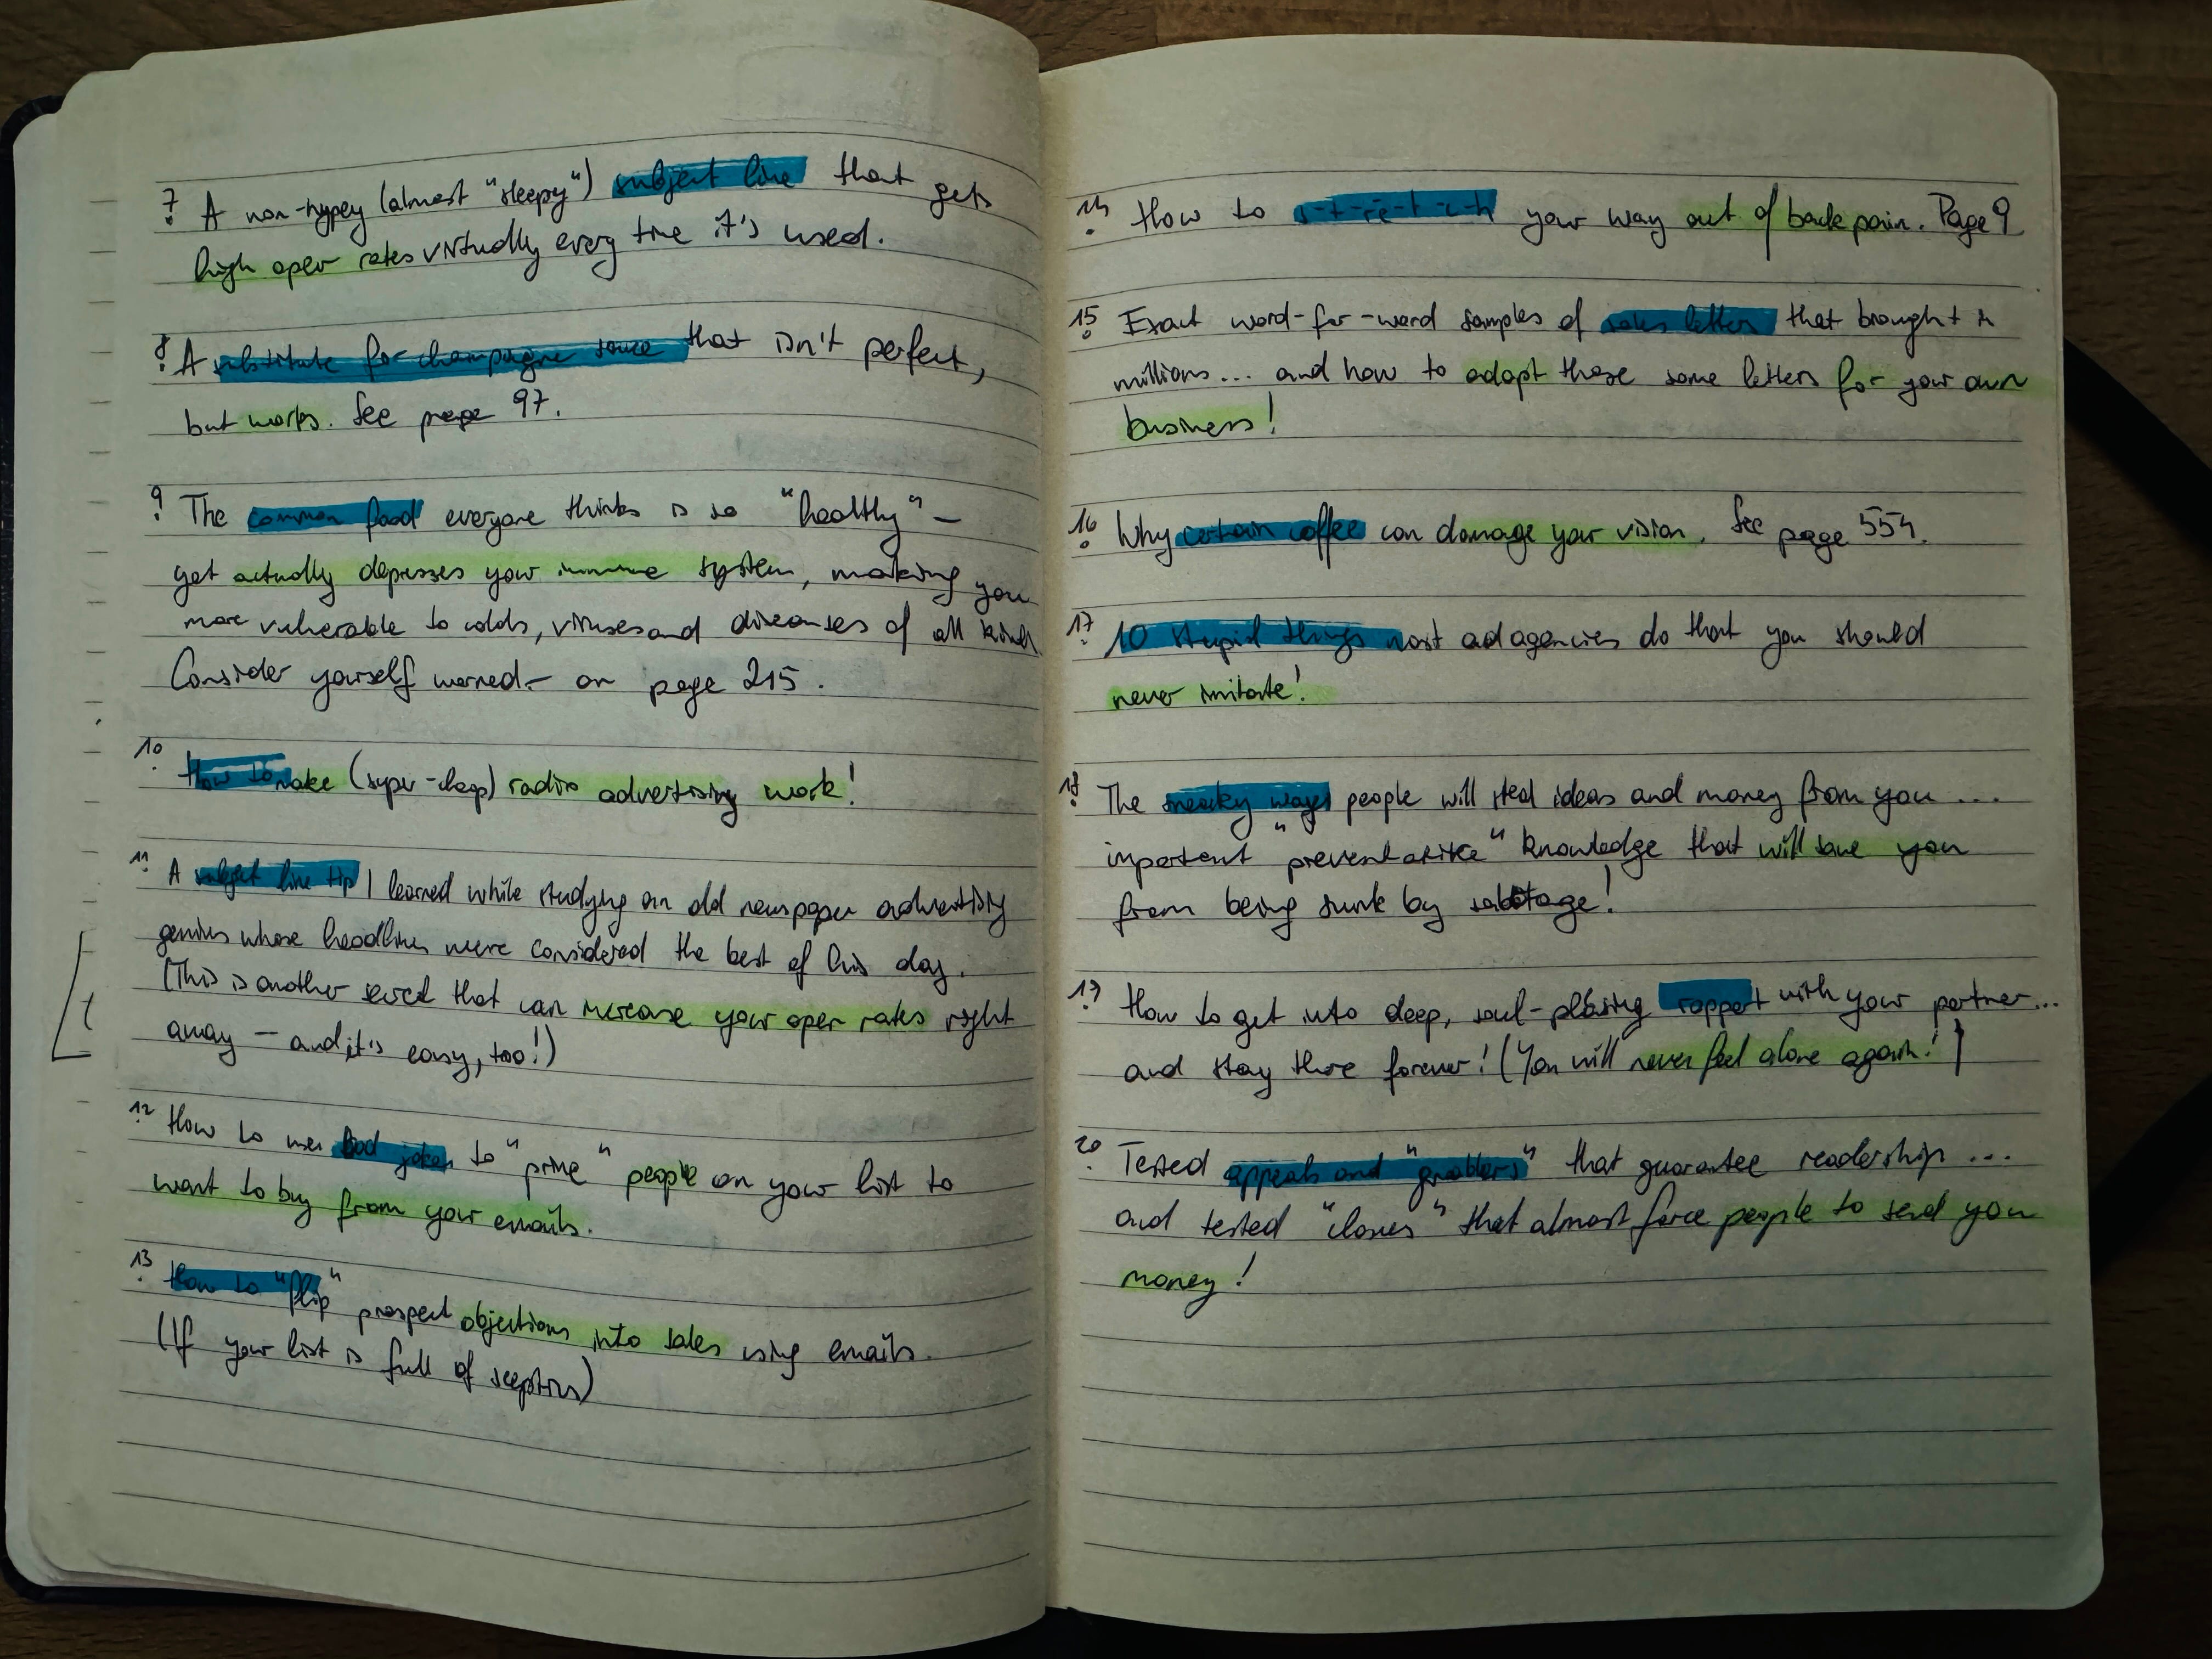 7. A non-hypey (almost "sleepy") subject line that gets
high open rates virtually every time it's used.
8. A substitute for champagne sauce that isn't perfect,
but works. See page 97.
9. The common food everyone thinks is so "healthy" –
yet actually depresses your immune system, making you
more vulnerable to colds, viruses and diseases of all kind
Consider yourself warned – on page 215.
10. How to make (super-cheap) radio advertising work!
11. A subject line tip I learned while studying an old newspaper advertising
genius whose headlines were considered the best of his day.
(This is another secret that can increase your open rates right
away – and it's easy, too!)
12. How to use bad jokes to "prime" people on your list to
want to buy from your emails.
13. How to "flip" prospect objections into sales using emails.
(If your list is full of sceptics)
14. How to s-t-r-e-t-c-h your way out of back pain. Page 9
15. Exact word-for-word samples of sales letters that brought in
millions... and how to adapt those same letters for your own
business!
16. Why certain coffee can damage your vision. See page 554.
17. 10 stupid things most ad agencies do that you should
never imitate!
18. The sneaky ways people will steal ideas and money from you ...
important "preventative" knowledge that will save you
from being sunk by sabotage!
19. How to get into deep, soul-pleasing rapport with your partner...
and stay there forever! (You will never feel alone again!)
20. Tested appeals and "grabbers" that guarantee readership ...
and tested "closes" that almost force people to send you
money!